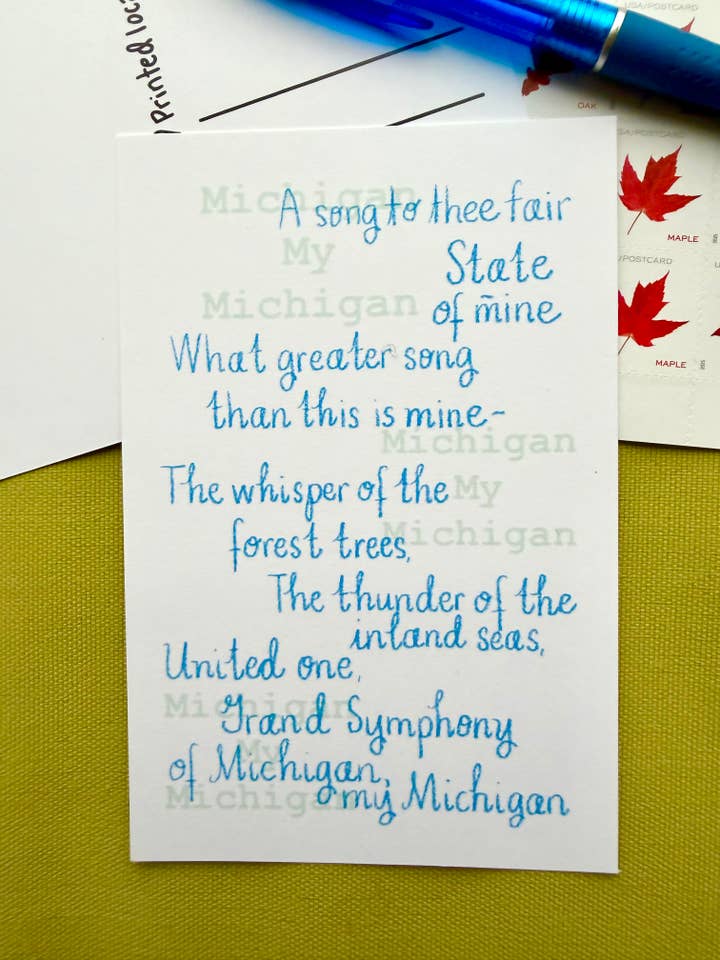 Printed loc
USA/POSTCARD
OAK
USA/POSTCARD
MAPLE
/POSTCARD
MAPLE
Michigan
My
Michigan
A song to thee fair
State
of mine
What greater song
than this is mine-
Michigan
My
Michigan
The whisper of the
forest trees,
The thunder of the
inland seas,
United one,
Grand Symphony
of Michigan,
my Michigan
Michigan
My
Michigan